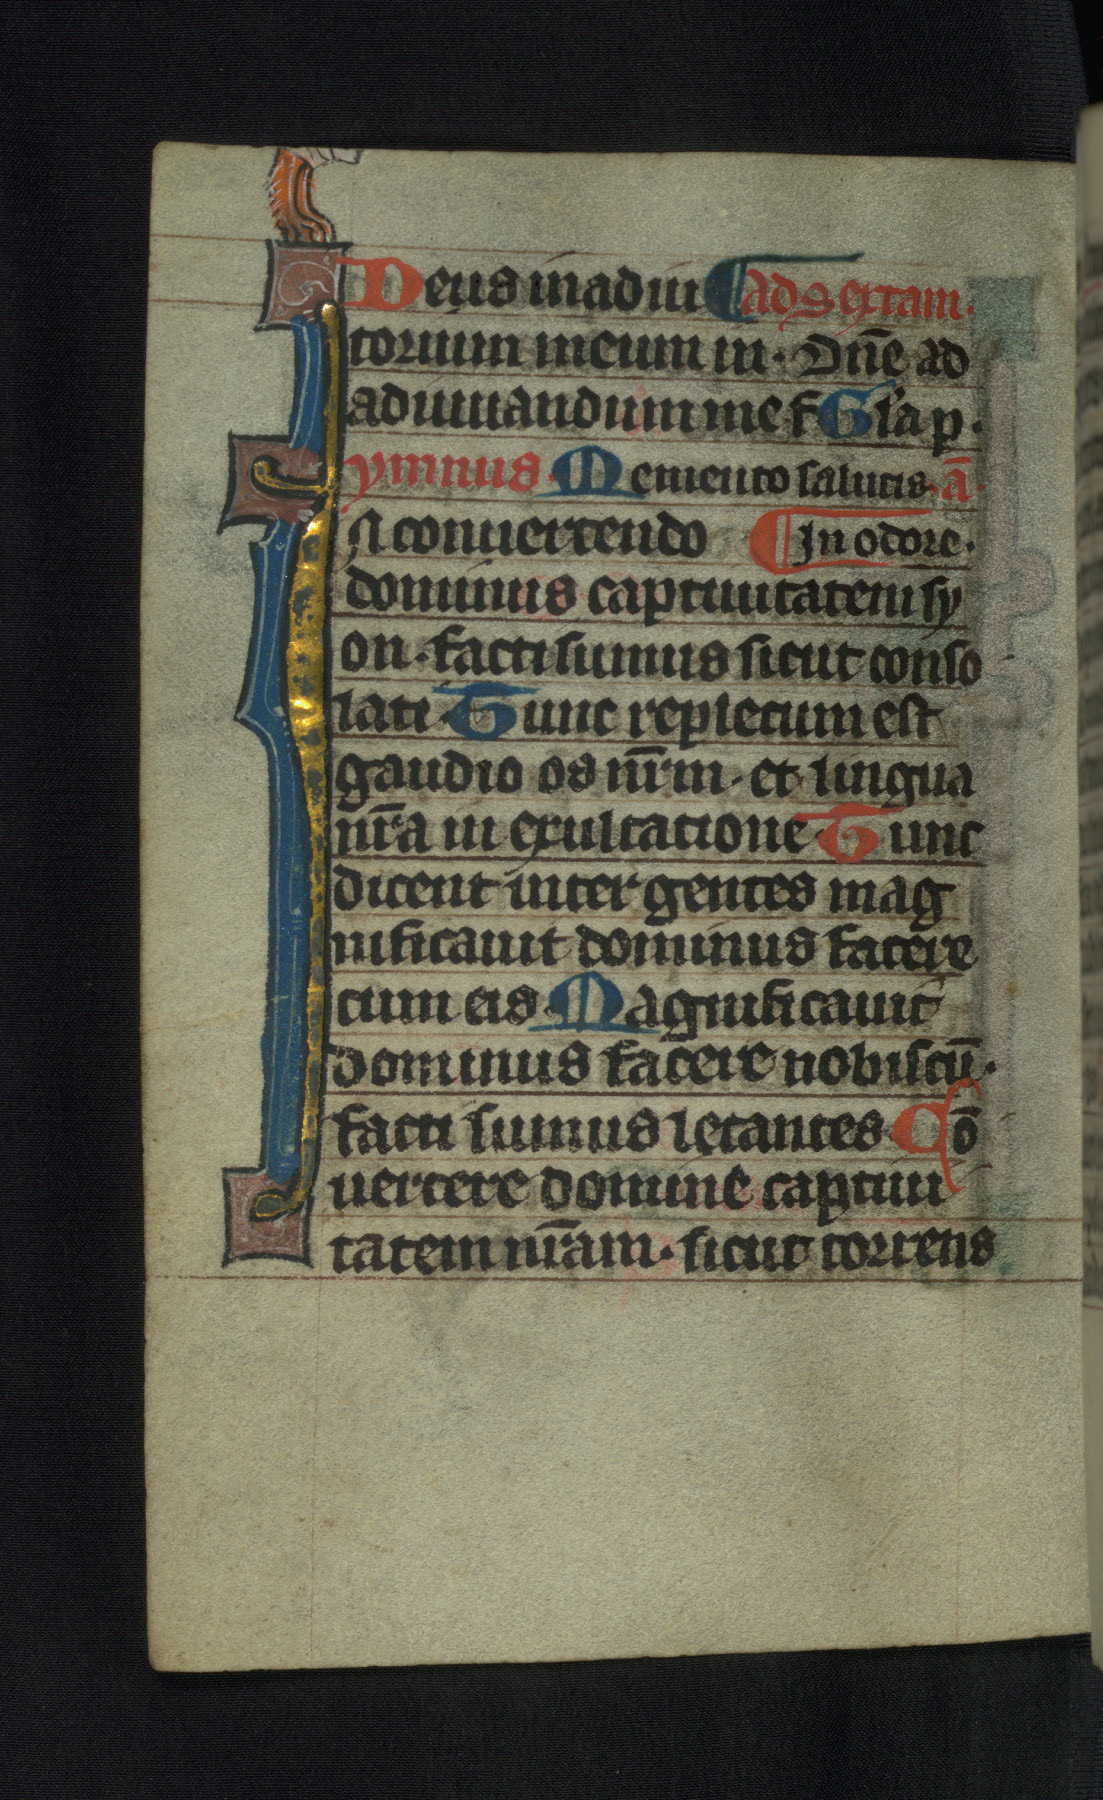 Deus in adiu ¶ ad sextam.
torium meum in. Dn̄e ad
adiuuandum me f̄ Gl'a p.
ymnus. Memento salutis. ā.
In conuertendo ¶ In odore.
dominus captiuitatem sy
on. facti sumus sicut conso
lati. Tunc repletum est
gaudio os nr̄m. et lingua
nr̄a in exultatione. Tunc
dicent inter gentes mag
nificauit dominus facere
cum eis. Magnificauit
dominus facere nobiscū.
facti sumus letantes. Cō
uertere domine captiui
tatem nr̄am. sicut torrens